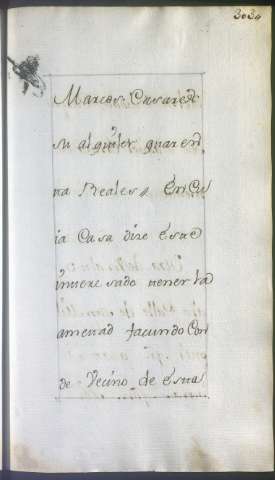 3034
Marcos Casares
su alquiler quaren
ta Reales, en cu
ia Casa dize este
interesado tener la
amenad facundo Con
de Vecino de esta